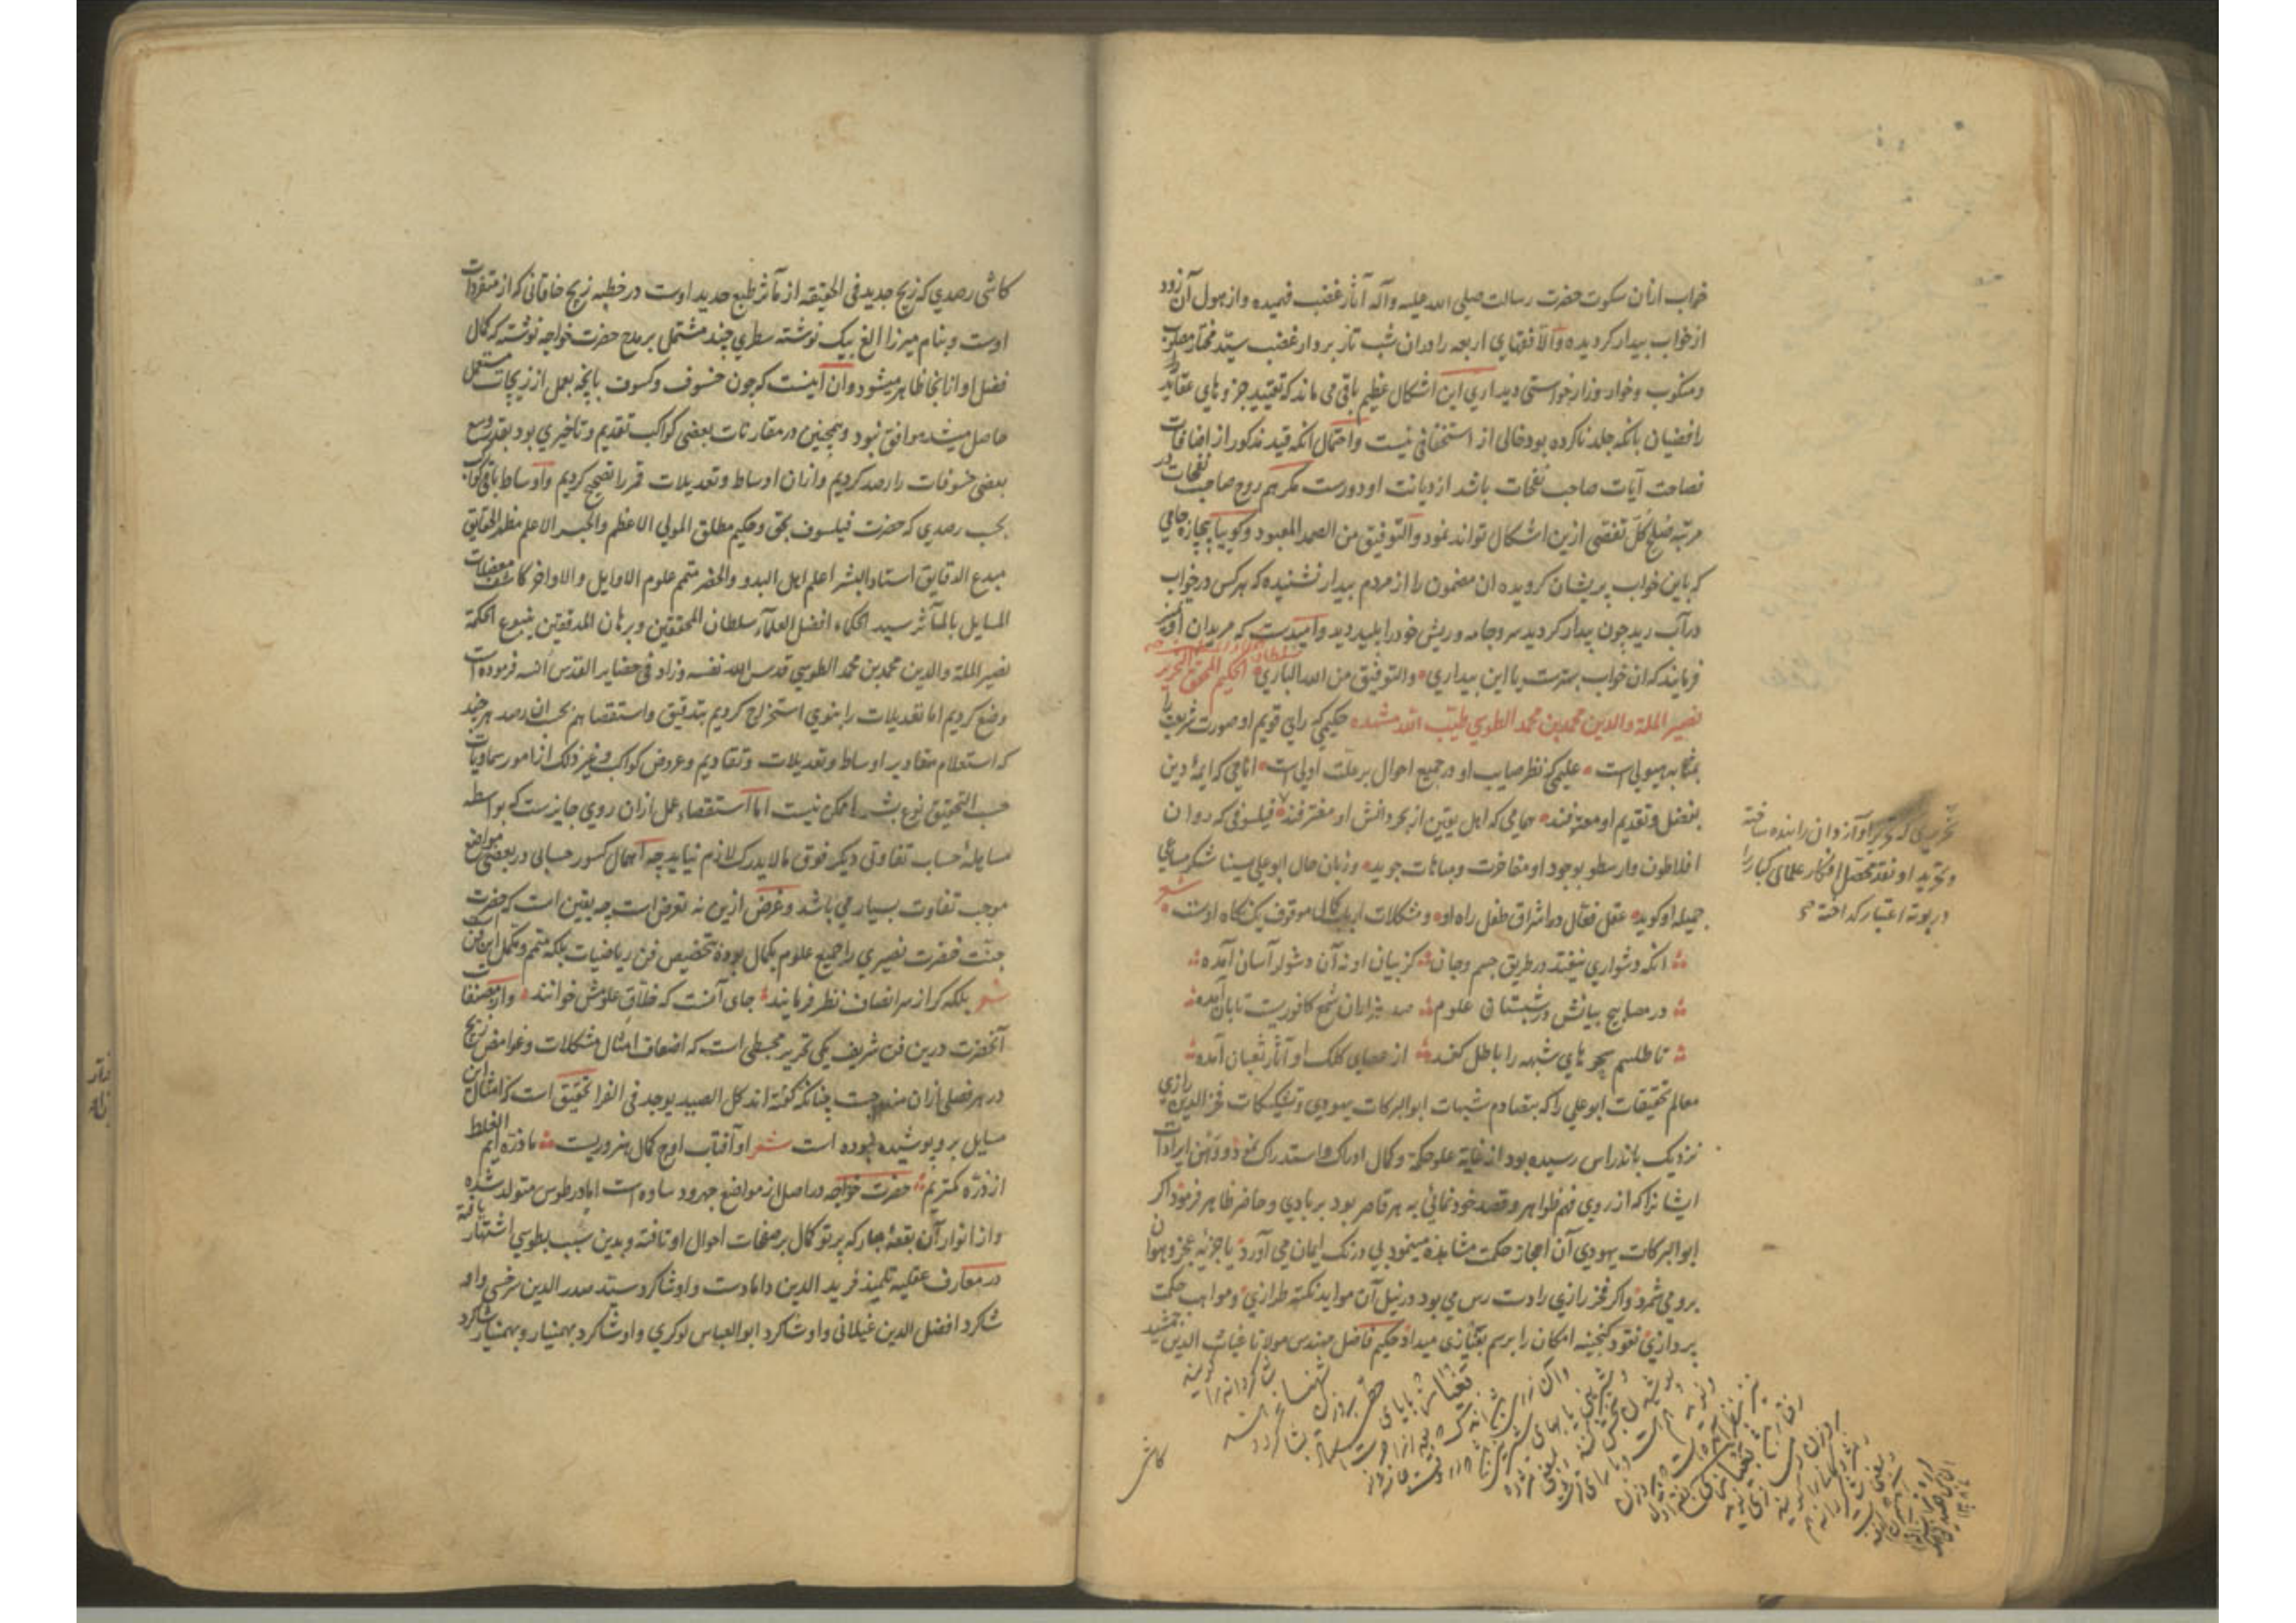 خواب ازان سکوت حضرت رسالت صلی الله علیه وآله آثار غضب فهمیده و از هول آن زود
از خواب بیدار کردیده والا فقهای اربعه را دران شب تاز بردار غضب سید مختار مصلوب
ومنکوب وخوار وزار خواستی دید اری این اشکال عظیم باقی می ماند که تقیید جزوهای عقاید
رافضیان بانکه جلد ناکرده بود خالی از استخفافی نیست واحتمال انکه قید مذکور از اضافات
فصاحت آیات صاحب نفحات باشد از دیانت او دورست مکر هم روح صاحب نفحات در
مرتبه صلح کل تفصی ازین اشکال تواند نمود والتوفیق من الصمد المعبود وکویا بیچاره جامی
که باین خواب پریشان کرویده ان مضمون را از مردم بیدار نشنیده که هرکس در خواب
درآب رید چون بیدار کردید سر وجامه وریش خود را پلید دید وامیدست که مریدان او نیز
فرمایند که ان خواب بهترست یا این بیداری والتوفیق من الله الباری سلطان الحکیم المحقق النحریر
نصیر الملة والدین محمد بن محمد الطوسی طیب الله مشهده حکیمی که رای قویم او صورت شریعت را
بمثابه هیولی است علیمی که نظر صایب او در جمیع احوال بر علت اولی است امامی که ایمهٔ دین
بفضل وتقدیم او معترفند همامی که اهل یقین از بحر دانش او مغترفند فیلسوفی که روان
افلاطون وارسطو بوجود او مفاخرت ومباهات جوید وزبان حال ابوعلی سینا شکر مساعی
جمیله او کوید عقل فعال در اشراق طفل راه او ومشکلات ارباب کمال موقوف یک نکاه اوست شعر
انکه دشواری نیفتد در طریق جسم وجان کز بیان او نه آن دشوار آسان آمده
در مصابیح بیانش در شبستان علوم صد هزاران شمع کافوریت تابان آمده
تا طلسم سحرهای شبهه را باطل کند از عصای کلک او آثار ثعبان آمده
معالم تحقیقات ابوعلی را که بتصادم شبهات ابوالبرکات یهودی وتشکیکات فخر الدین رازی
نزدیک باندراس رسیده بود از غایة علو حکمة وکمال ادراک واستدراک نمود ووهن ایرادات
ایشانرا که از روی فهم ظواهر وقصد خودنمائی به هر قاصر بود بر بادی وحاضر ظاهر فرمود اکر
ابوالبرکات یهودی آن اعجاز حکمت مشاهده مینمود بی درنک ایمان می آورد یا جزیه عجز وهوان
برو می شمرد واکر فخر رازی را دست رس می بود در نیل آن مواید نکته طرازی ومواهب حکمت
پردازی نقود کنجینه امکان را برسم نعلبازی میداد حکیم فاضل مهندس مولانا غیاث الدین جمشید
تحریری که تحریر او آن زمان را زنده ساخته
وتجرید او نقد محصل افکار علمای کبار را
در بوته اعتبار کداخته
کاشی
کاشی رصدی که زیج جدید فی الحقیقه از مآثر طبع حدید اوست در خطبه زیج خاقانی که از متفردات
اوست وبنام میرزا الغ بیک نوشته سطری چند مشتمل بر مدح حضرت خواجه نوشته که کمال
فضل او ازانجا ظاهر میشود وان اینست که چون خسوف وکسوف بانچه بعمل از زیجات مستعمل
حاصل میشد موافق نبود وهمچنین در مقارنات بعضی کواکب تقدیم وتاخیری بود بقدر وسع
بعضی خسوفات را رصد کردیم وازان اوساط وتعدیلات قمر را تصحیح کردیم واوساط باقی کواکب
بحسب رصدی که حضرت فیلسوف بحق وحکیم مطلق المولی الاعظم والحبر الاعلم مظهر الحقایق
مبدع الدقایق استاد البشر اعلم اهل البدو والحضر متمم علوم الاوایل والاواخر کاشف معضلات
المسایل بالمآثر سید الحکماء افضل العلماء سلطان المحققین وبرهان المدققین ینبوع الحکمة
نصیر الملة والدین محمد بن محمد الطوسی قدس الله نفسه وزاد فی حضایر القدس انسه فرموده است
وضع کردیم اما تعدیلات را بنوی استخراج کردیم بتدقیق واستقصا هم بحسب ان رصد هرچند
که استعلام مقادیر اوساط وتعدیلات وتقادیم وعروض کواکب وغیر ذلک از امور سماویات
حسب التحقیق نوع بشر را ممکن نیست اما استقصاء عمل ازان روی جایزست که بواسطه
مساهلهٔ حساب تفاوتی دیکر فوق مالایدرک لازم نیاید چه اهمال کسور حسابی در بعضی مواضع
موجب تفاوت بسیار می باشد وغرض ازین نه تعرض است چه یقین است که حضرت
جنت حضرت نصیری را جمیع علوم بکمال بوده بتخصیص فن ریاضیات بلکه متمم ومکمل این فن است
بلکه کر از سر انصاف نظر فرمایند شعر جای آنست که خلاق علومش خوانند واز مصنفات
آنحضرت درین فن شریف یکی تحریر مجسطی است که اضعاف امثال مشکلات وغوامض زیج
در هر فصلی ازان مندرجست چنانکه کفته اند کل الصید یوجد فی الفرا تحقیق است که امثال این
مسایل برو پوشیده نبوده است شعر او آفتاب اوج کمال هنروریست ما ذره ایم الغلط
از ذره کمتریم حضرت خواجه در اصل از مواضع جهرود ساوه است اما در طوس متولد شده
واز انوار آن بقعهٔ مبارکه پرتو کمال بر صفحات احوال او تافته وبدین سبب بطوسی اشتهار یافته
در معارف عقلیه تلمیذ فرید الدین دامادست واو شاکرد سید صدر الدین سرخسی واو
شاکرد افضل الدین غیلانی واو شاکرد ابوالعباس لوکری واو شاکرد بهمنیار وبهمنیار شاکرد